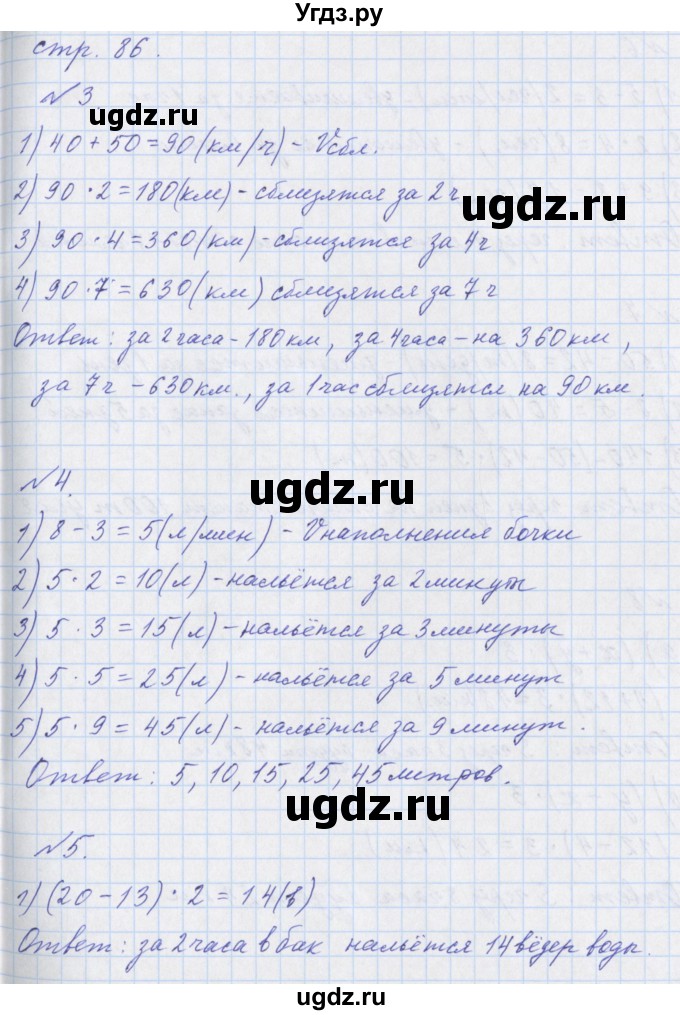 Угдз.ру
стр. 86.
№3
ugdz.ru
1) 40 + 50 = 90 (км/ч) - Vсбл.
2) 90 · 2 = 180 (км) - сблизятся за 2 ч
ugdz.ru
3) 90 · 4 = 360 (км) - сблизятся за 4 ч
4) 90 · 7 = 630 (км) сблизятся за 7 ч
Ответ: за 2 часа - 180 км, за 4 часа - на 360 км,
за 7 ч - 630 км., за 1 час сблизятся на 90 км.
№4.
ugdz.ru
1) 8 - 3 = 5 (л/мин) - Vнаполнения бочки
2) 5 · 2 = 10 (л) - нальётся за 2 минуты
3) 5 · 3 = 15 (л) - нальётся за 3 минуты
4) 5 · 5 = 25 (л) - нальётся за 5 минут
5) 5 · 9 = 45 (л) - нальётся за 9 минут.
Ответ: 5, 10, 15, 25, 45 литров.
ugdz.ru
№5.
г) (20 - 13) · 2 = 14 (в)
Ответ: за 2 часа в бак нальётся 14 вёдер воды.
ugdz.ru